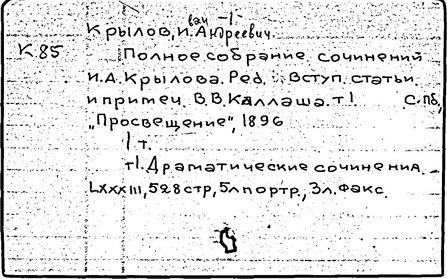 Крылов, Иван Андреевич. -1-
К 85
Полное собрание сочинений
И.А. Крылова. Ред. : Вступ. статьи
и примеч. В.В. Каллаша. т 1. С.Пб,
„Просвещение", 1896
1 т.
т1. Драматические сочинения.
LXXXIII, 528 стр, 5л портр., 3л. факс.